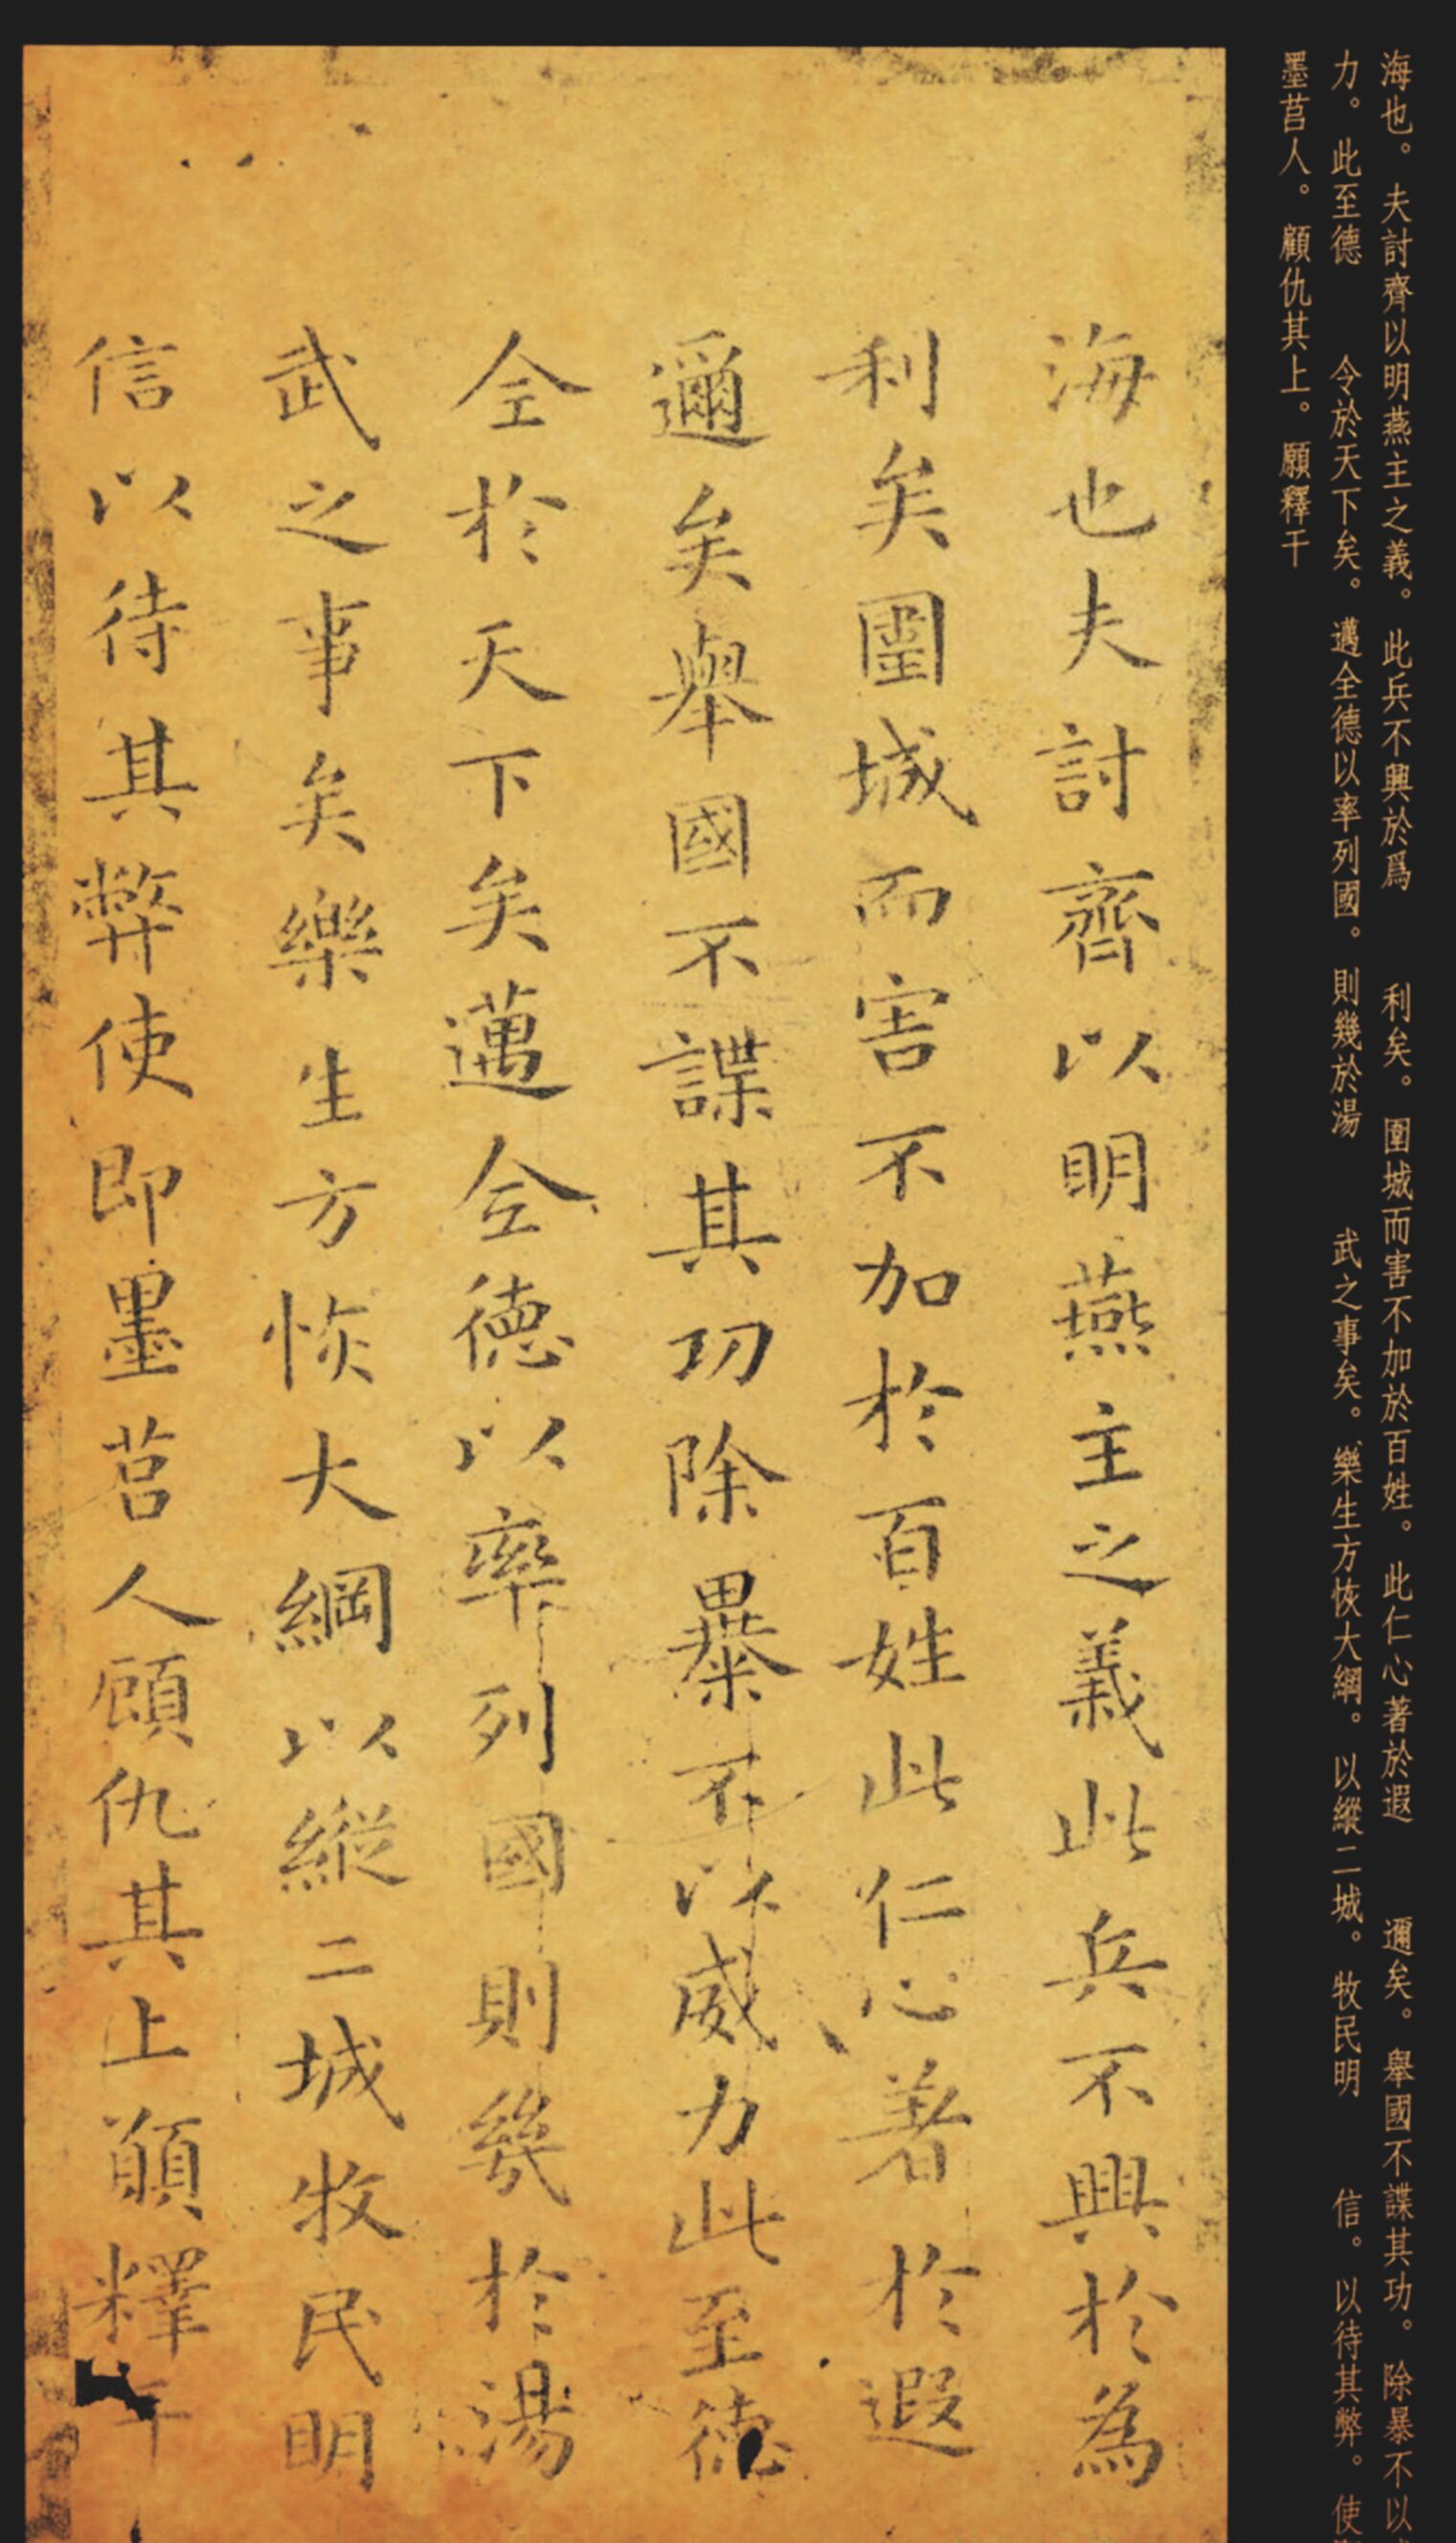 海也。夫討齊以明燕主之義。此兵不興於爲　利矣。圍城而害不加於百姓。此仁心著於遐　邇矣。舉國不諜其功。除暴不以
力。此至德　令於天下矣。邁全德以率列國。則幾於湯　武之事矣。樂生方恢大綱。以縱二城。牧民明　信。以待其弊。使
墨莒人。顧仇其上。願釋干
海也夫討齊以明燕主之義此兵不興於為
利矣圍城而害不加於百姓此仁心著於遐
邇矣舉國不諜其功除暴不以威力此至德
全於天下矣邁全德以率列國則幾於湯
武之事矣樂生方恢大綱以縱二城牧民明
信以待其弊使即墨莒人顧仇其上願釋干